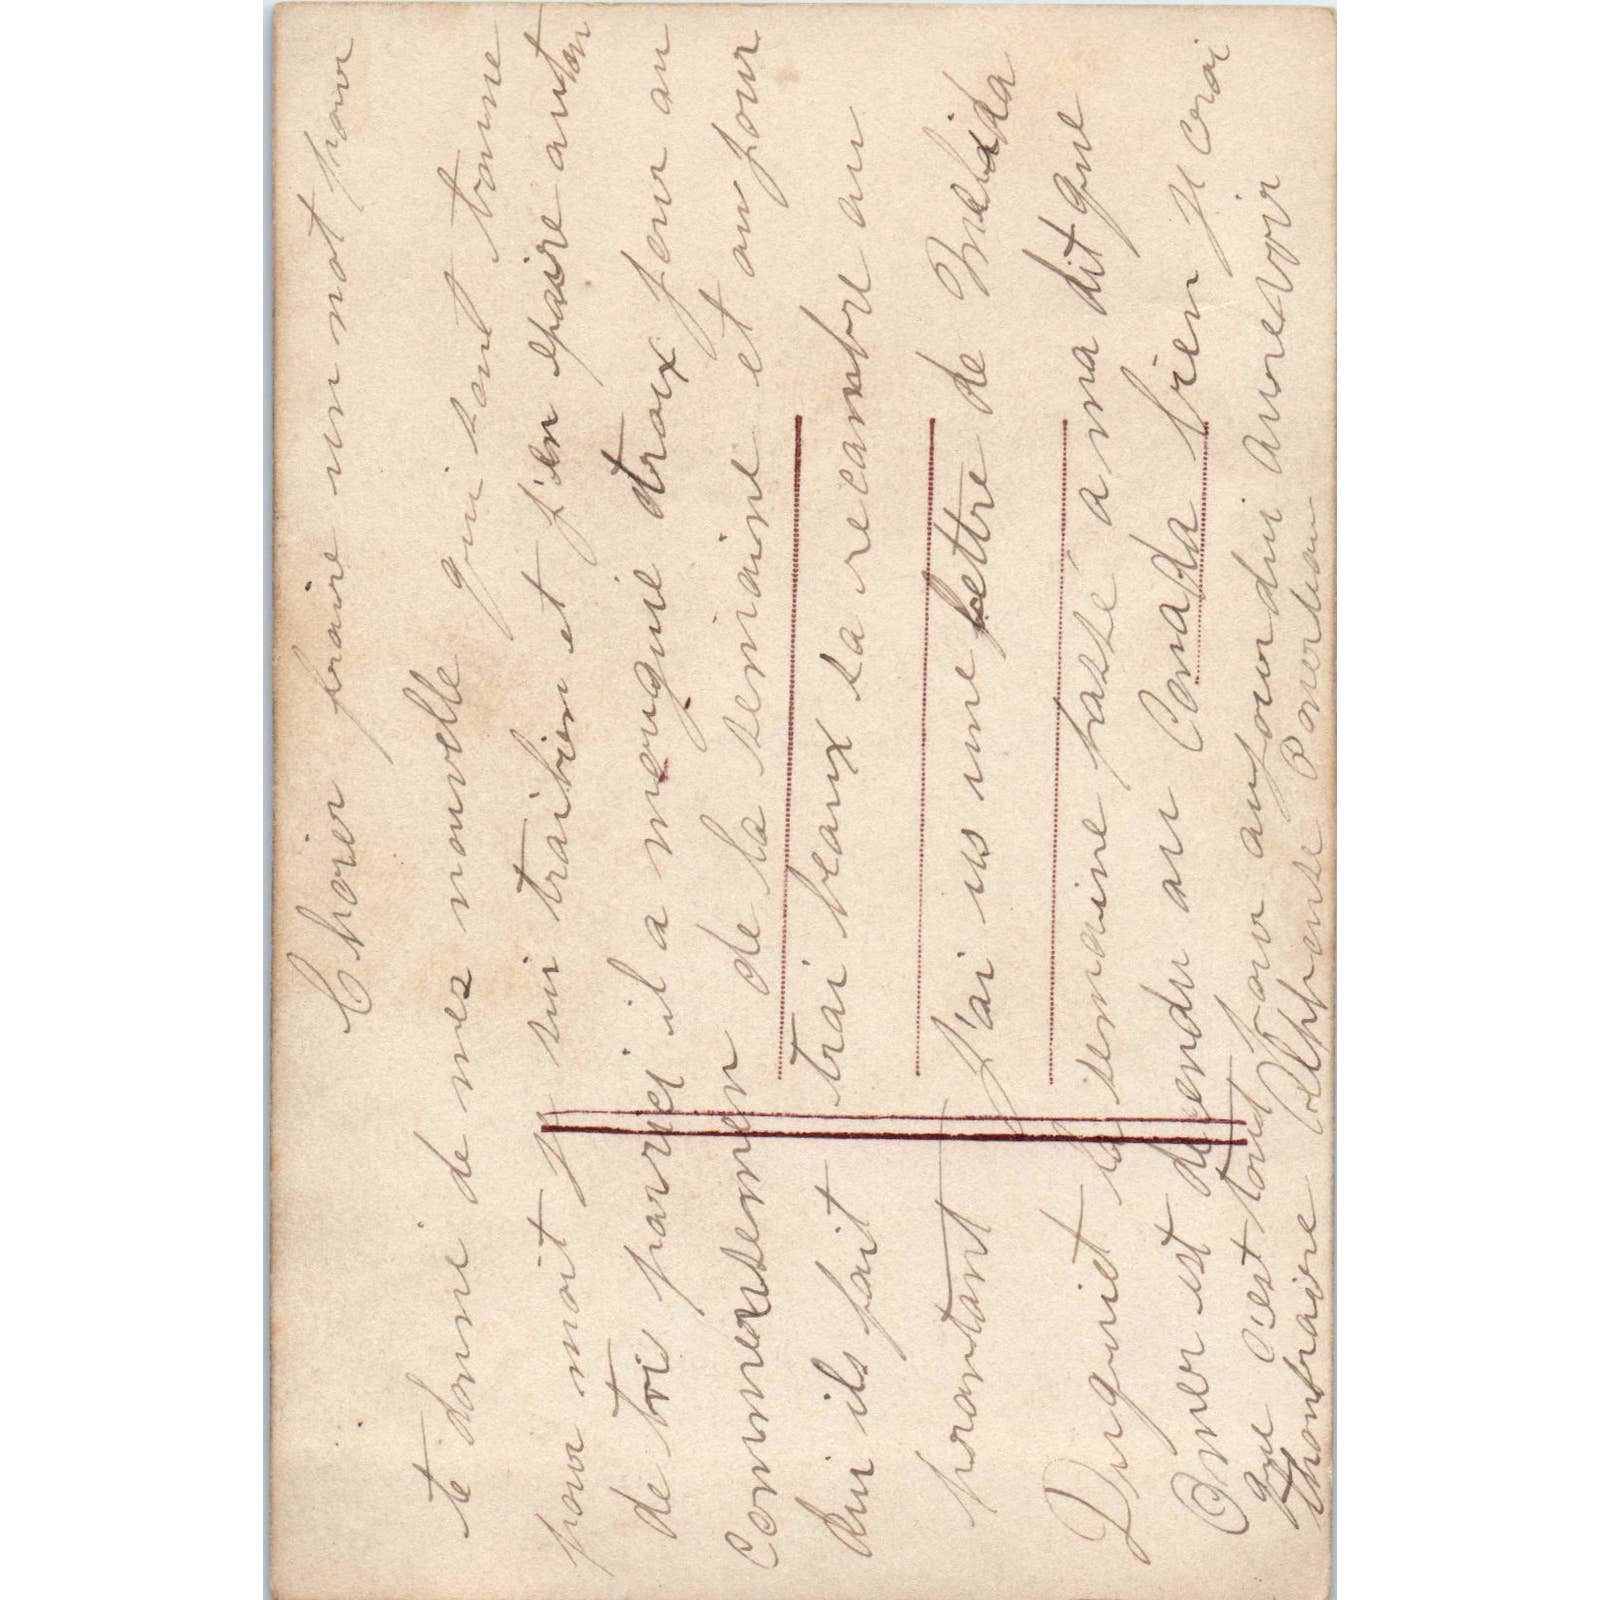 Chier fraire un mot pour
te donné de mes nouvelle qui sont bonne
pour moit je sui traibien et j'en epaire auton
de toi pariei il a mouguie troix jour au
Commensemen de la semaine et aujour
dui ils fait trai beaux sa recambre au
prantant J'ai us une lettre de Melida
Duguiet la semaine passé a ma dit que
Omer est dendu au Canada bien je crai
que c'est tout pour aujourdui aurevoir
thonfraire Alphonse